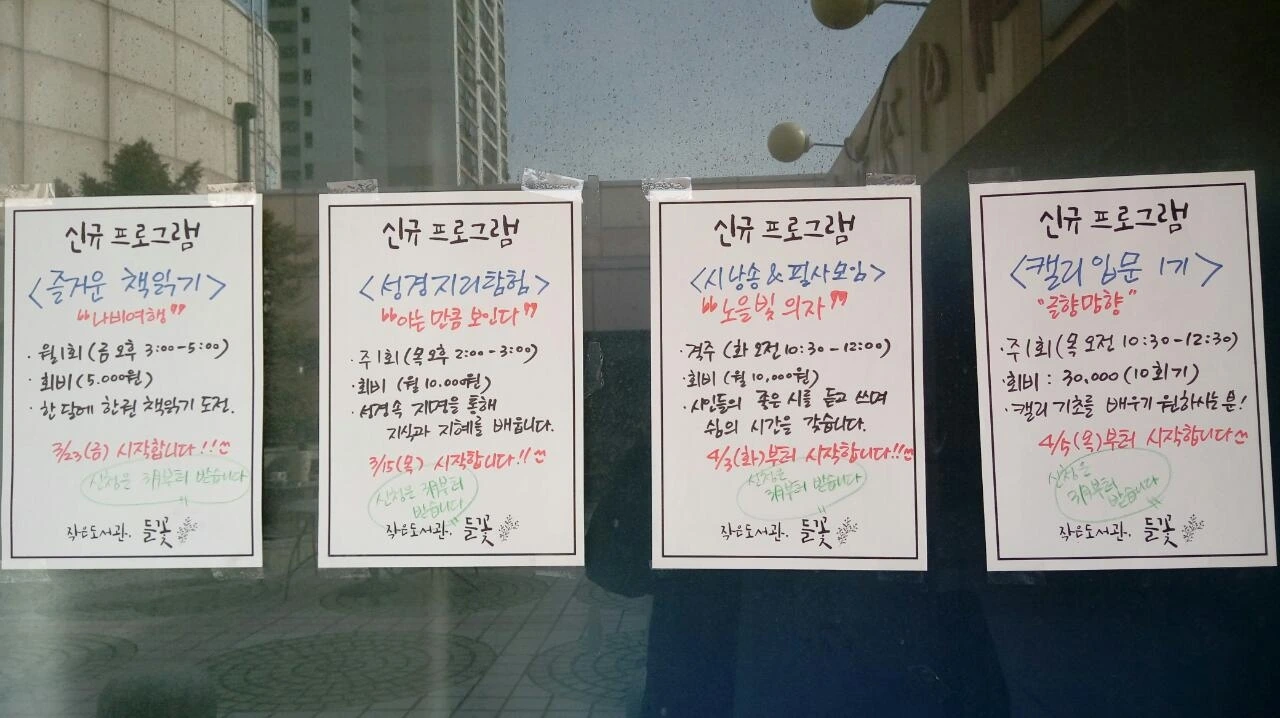 신규 프로그램
<즐거운 책읽기>
"나비여행"
· 월1회(금 오후 3:00-5:00)
· 회비(5.000원)
· 한 달에 한권 책읽기 도전.
3/23(금) 시작합니다!!
신청은 3月부터 받습니다
작은도서관, 들꽃
신규 프로그램
<성경지리탐험>
"아는 만큼 보인다"
· 주1회(목 오후 2:00-3:00)
· 회비(월10.000원)
· 성경속 지명을 통해
지식과 지혜를 배웁니다.
3/15(목) 시작합니다!!
신청은 3月부터
받습니다
작은도서관, 들꽃
신규 프로그램
<시낭송&필사모임>
"노을빛 의자"
· 격주(화 오전10:30-12:00)
· 회비(월10,000원)
· 시인들의 좋은 시를 듣고 쓰며
쉼의 시간을 갖습니다.
4/3(화)부터 시작합니다!!
신청은
3月부터 받습니다
작은도서관, 들꽃
신규 프로그램
<캘리 입문 1기>
"글향망향"
· 주1회(목 오전10:30-12:30)
· 회비: 30,000(10회기)
· 캘리 기초를 배우기 원하시는 분!
4/5(목)부터 시작합니다
신청은
3月부터
받습니다
작은도서관, 들꽃